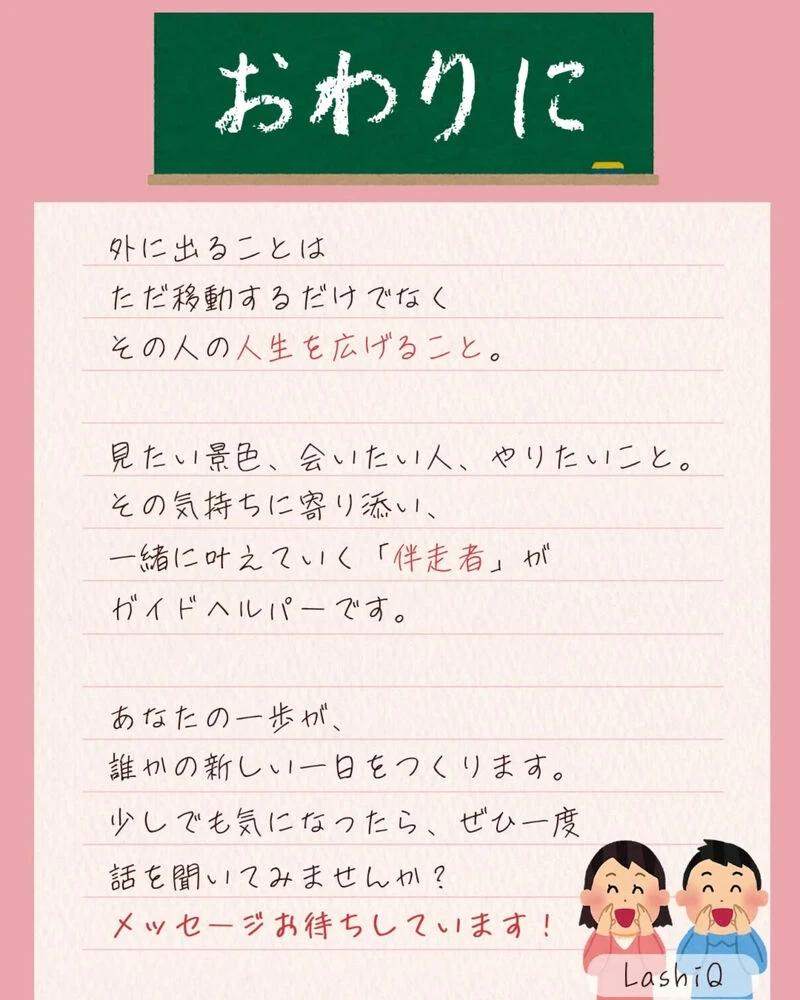 おわりに
外に出ることは
ただ移動するだけでなく
その人の人生を広げること。
見たい景色、会いたい人、やりたいこと。
その気持ちに寄り添い、
一緒に叶えていく「伴走者」が
ガイドヘルパーです。
あなたの一歩が、
誰かの新しい一日をつくります。
少しでも気になったら、ぜひ一度
話を聞いてみませんか?
メッセージお待ちしています!
LashiQ